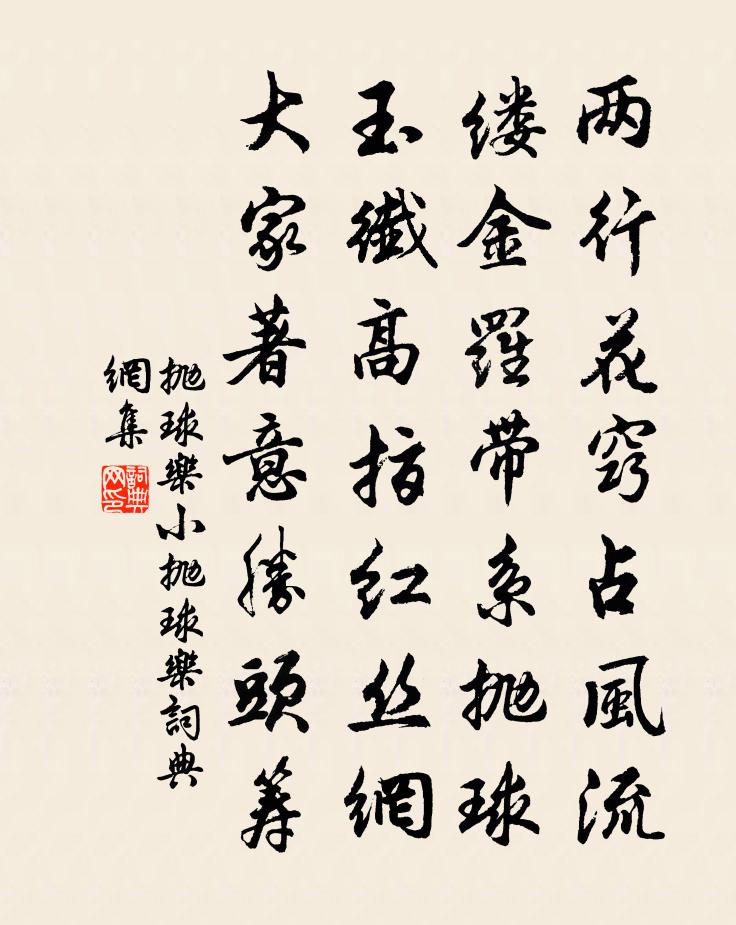 两行花窍占風流
缕金羅帶系抛球
玉纖高指红丝網
大家著意勝頭筹
抛球樂小抛球樂詞典
網集
詞典
网印